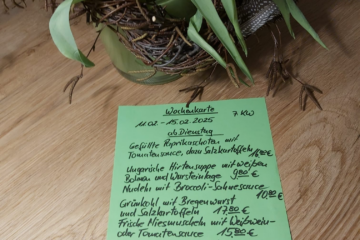 Wochenkarte
11.02. - 15.02.2025 7 KW
ab Dienstag
Gefüllte Paprikaschoten mit
Tomatensauce, dazu Salzkartoffeln
Ungarische Hirtensuppe mit weißen
Bohnen und Wursteinlage 9,80 €
Nudeln mit Broccoli-Sahnesauce
10,80 €
Grünkohl mit Bregenwurst
und Salzkartoffeln 17,80 €
Frische Miesmuscheln mit Weißwein-
oder Tomatensauce 15,80 €